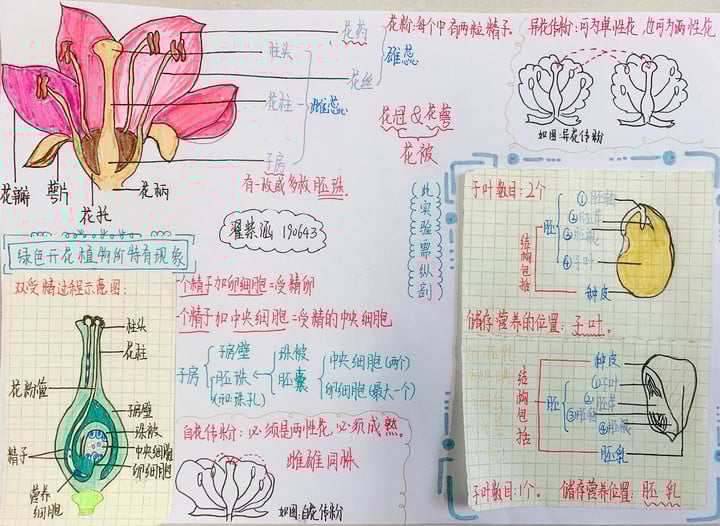 花药
花粉：每个中有两粒精子。
柱头
花丝
雄蕊
花柱
雌蕊
子房
有一枚或多枚胚珠.
花瓣
萼片
花托
花柄
花冠&花萼
花被
异花传粉：可为单性花 也可为两性花
如图：异花传粉
此实验需纵剖
翟紫涵 190643
绿色开花植物所特有现象
双受精过程示意图：
柱头
花柱
花粉管
子房壁
珠被
中央细胞
卵细胞
精子
营养细胞
一个精子加卵细胞=受精卵
一个精子加中央细胞=受精的中央细胞
子房
子房壁
胚珠
(和珠孔)
珠被
胚囊
中央细胞(两个)
卵细胞(最大一个)
自花传粉：必须是两性花,必须成熟。
雌雄同株
如图：自花传粉
子叶数目：2个
结构包括
胚
②胚芽
④子叶
种皮
储存营养的位置：子叶。
种皮
结构包括
胚
①子叶
②胚芽
④胚根
胚乳
子叶数目：1个。
储存营养位置：胚乳